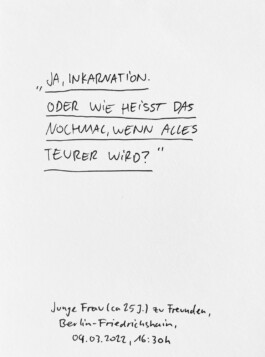 „JA, INKARNATION.
ODER WIE HEISST DAS
NOCHMAL, WENN ALLES
TEURER WIRD?“
Junge Frau (ca 25 J.) zu Freunden,
Berlin-Friedrichshain,
09.03.2022, 16:30h